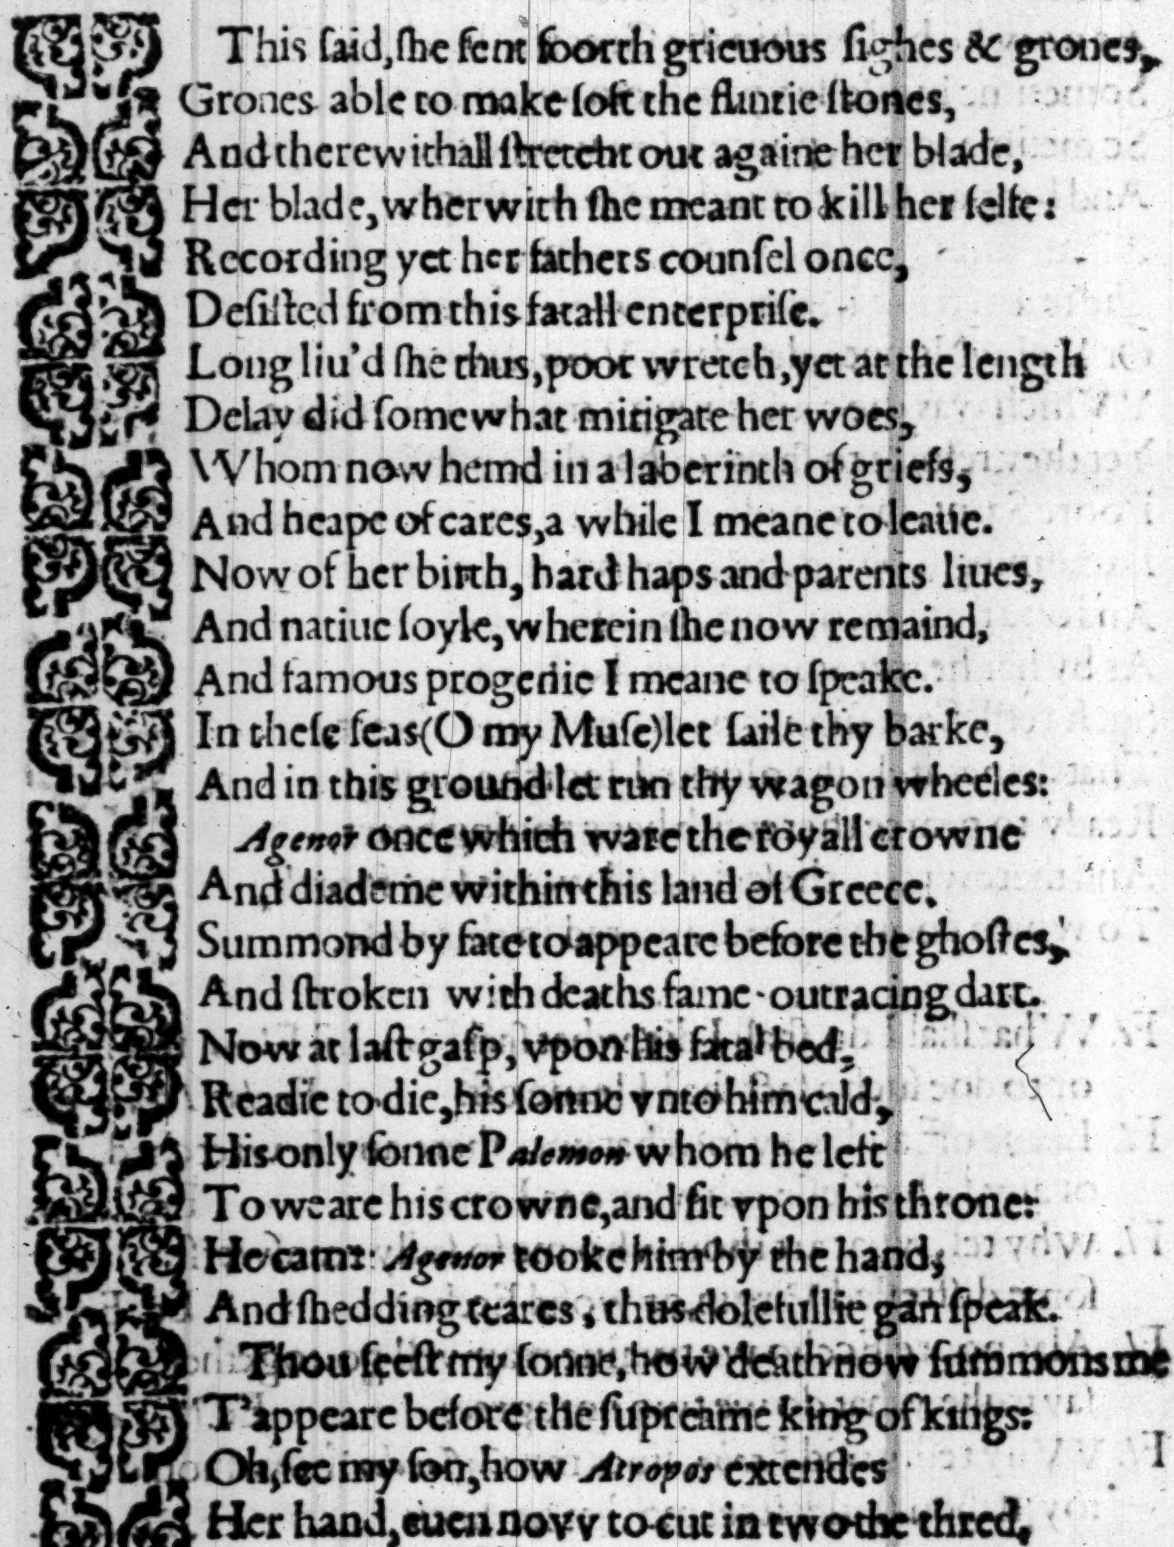 This ſaid, ſhe ſent foorth grieuous ſighes & grones,
Grones able to make ſoft the flintie ſtones,
And therewithall ſtretcht out againe her blade,
Her blade, wherwith ſhe meant to kill her ſelfe:
Recording yet her fathers counſel once,
Deſiſted from this fatall enterpriſe.
Long liu'd ſhe thus, poor wretch, yet at the length
Delay did ſomewhat mitigate her woes,
Whom now hemd in a laberinth of griefs,
And heape of cares, a while I meane to leaue.
Now of her birth, hard haps and parents liues,
And natiue ſoyle, wherein ſhe now remaind,
And famous progenie I meane to ſpeake.
In theſe ſeas (O my Muſe) let ſaile thy barke,
And in this ground let run thy wagon wheeles:
Agenor once which ware the royall crowne
And diademe within this land of Greece.
Summond by fate to appeare before the ghoſtes,
And ſtroken with deaths fame-outracing dart.
Now at laſt gaſp, vpon his fatal bed,
Readie to die, his ſonne vnto him cald,
His only ſonne Palemon whom he left
To weare his crowne, and ſit vpon his throne:
He came: Agenor tooke him by the hand,
And ſhedding teares, thus dolefullie gan ſpeak.
Thou ſeeſt my ſonne, how death now ſummons me
T'appeare before the ſupreame king of kings:
Oh, ſee my ſon, how Atropos extendes
Her hand, euen novv to cut in two the thred,